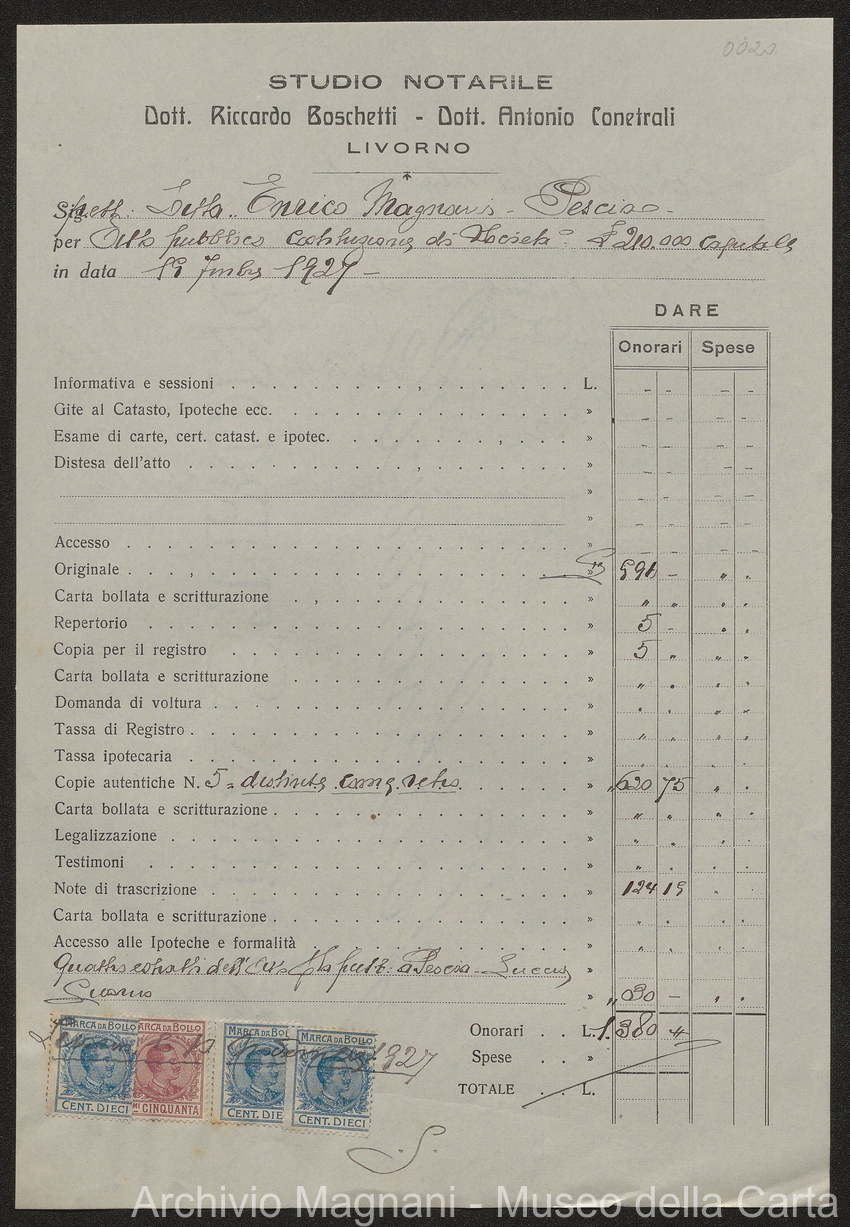 0020
STUDIO NOTARILE
Dott. Riccardo Boschetti - Dott. Antonio Conetrali
LIVORNO
Sig. Spett. Ditta Enrico Magnani - Pescia -
per Atto pubblico Costituzione di Società £ 210.000 Capitale
in data 1927 -
DARE
Onorari Spese
Informativa e sessioni L. - - - -
Gite al Catasto, Ipoteche ecc. » - - - -
Esame di carte, cert. catast. e ipotec. » - - - -
Distesa dell'atto » - - - -
» - - - -
» - - - -
Accesso » - - - -
Originale » 591 - " "
Carta bollata e scritturazione » " " " "
Repertorio » 5 - " "
Copia per il registro » 5 " " "
Carta bollata e scritturazione » " " " "
Domanda di voltura » " " " "
Tassa di Registro » " " " "
Tassa ipotecaria » " " " "
Copie autentiche N. 5 = distinte » 620 75 " "
Carta bollata e scritturazione » " " " "
Legalizzazione » " " " "
Testimoni » " " " "
Note di trascrizione » 124 15 " "
Carta bollata e scritturazione » " " " "
Accesso alle Ipoteche e formalità » " " " "
Quattro estratti dell' a Pescia - Lucca
» " 030 - " "
MARCA DA BOLLO MARCA DA BOLLO MARCA DA BOLLO MARCA DA BOLLO
1927
CENT. DIECI CINQUANTA CENT. DIECI CENT. DIECI
Onorari L. 1.380
Spese »
TOTALE L.
Archivio Magnani - Museo della Carta